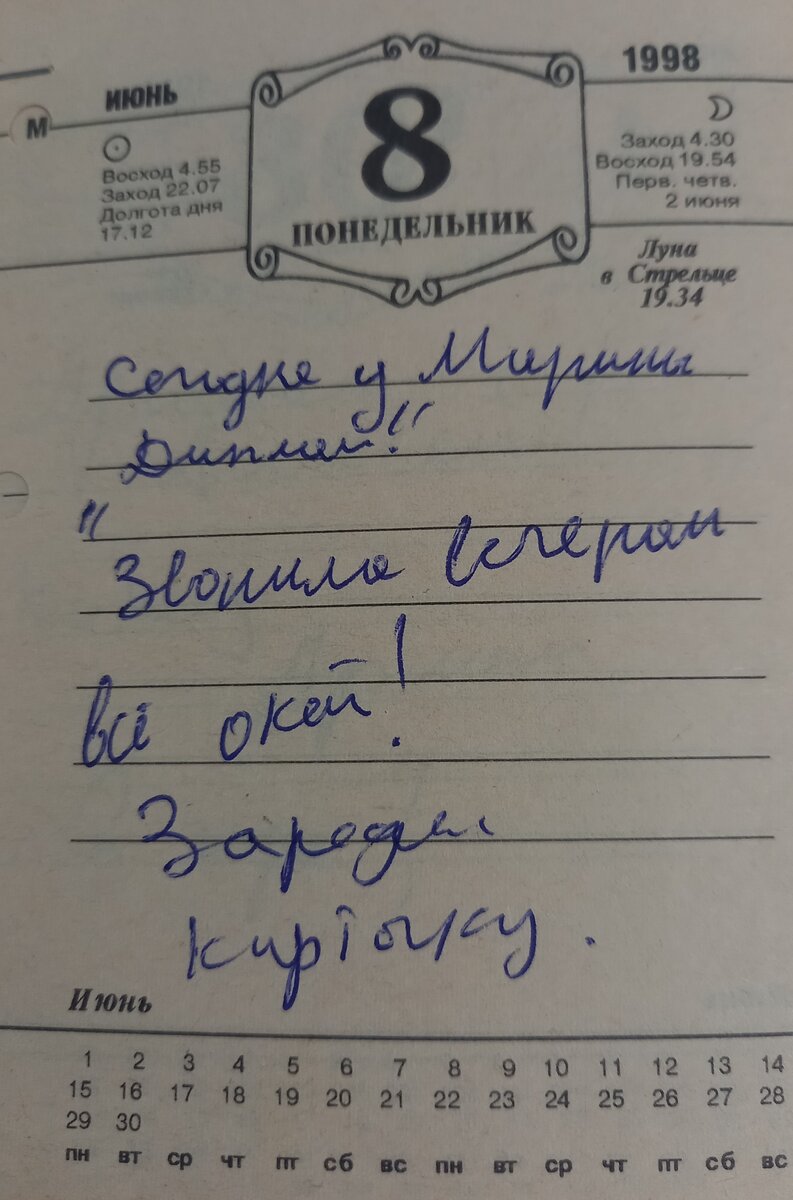 ИЮНЬ
8
1998
М
Восход 4.55
Заход 22.07
Долгота дня
17.12
ПОНЕДЕЛЬНИК
Заход 4.30
Восход 19.54
Перв. четв.
2 июня
Луна
в Стрельце
19.34
Сегодня у Марины
Диплом!"
"
Звонила вечером
всё окей!
карточку.
Июнь
1 2 3 4 5 6 7 8 9 10 11 12 13 14
15 16 17 18 19 20 21 22 23 24 25 26 27 28
29 30
пн вт ср чт пт сб вс пн вт ср чт пт сб вс